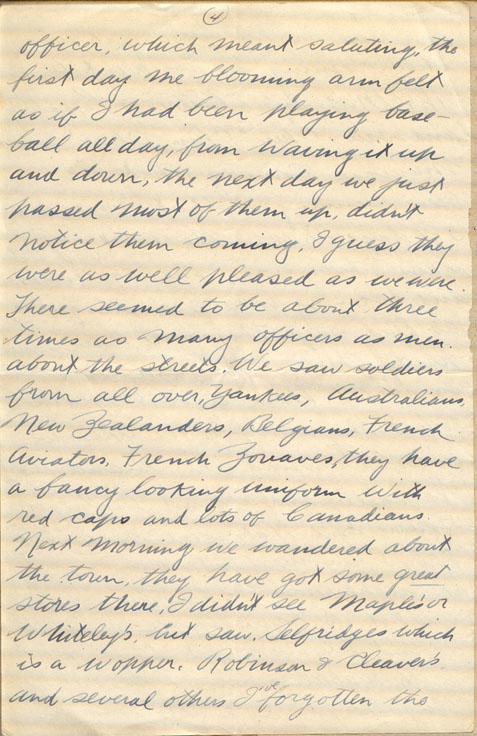 4
officer, which meant saluting, the
first day me blooming arm felt
as if I had been playing base-
ball all day, from waving it up
and down, the next day we just
passed most of them up, didn't
notice them coming. I guess they
were as well pleased as we were.
There seemed to be about three
times as many officers as men.
about the streets. We saw soldiers
from all over, Yankees, Australians,
New Zealanders, Belgians, French
Aviators, French Zovaves, they have
a fancy looking uniform with
red caps and lots of Canadians.
Next morning we wandered about
the town, they have got some great
stores there, I didn't see Maple's or
Whiteley's, but saw. Selfridges which
is a wopper. Robinson & Cleaver's
and several others I've forgotten the